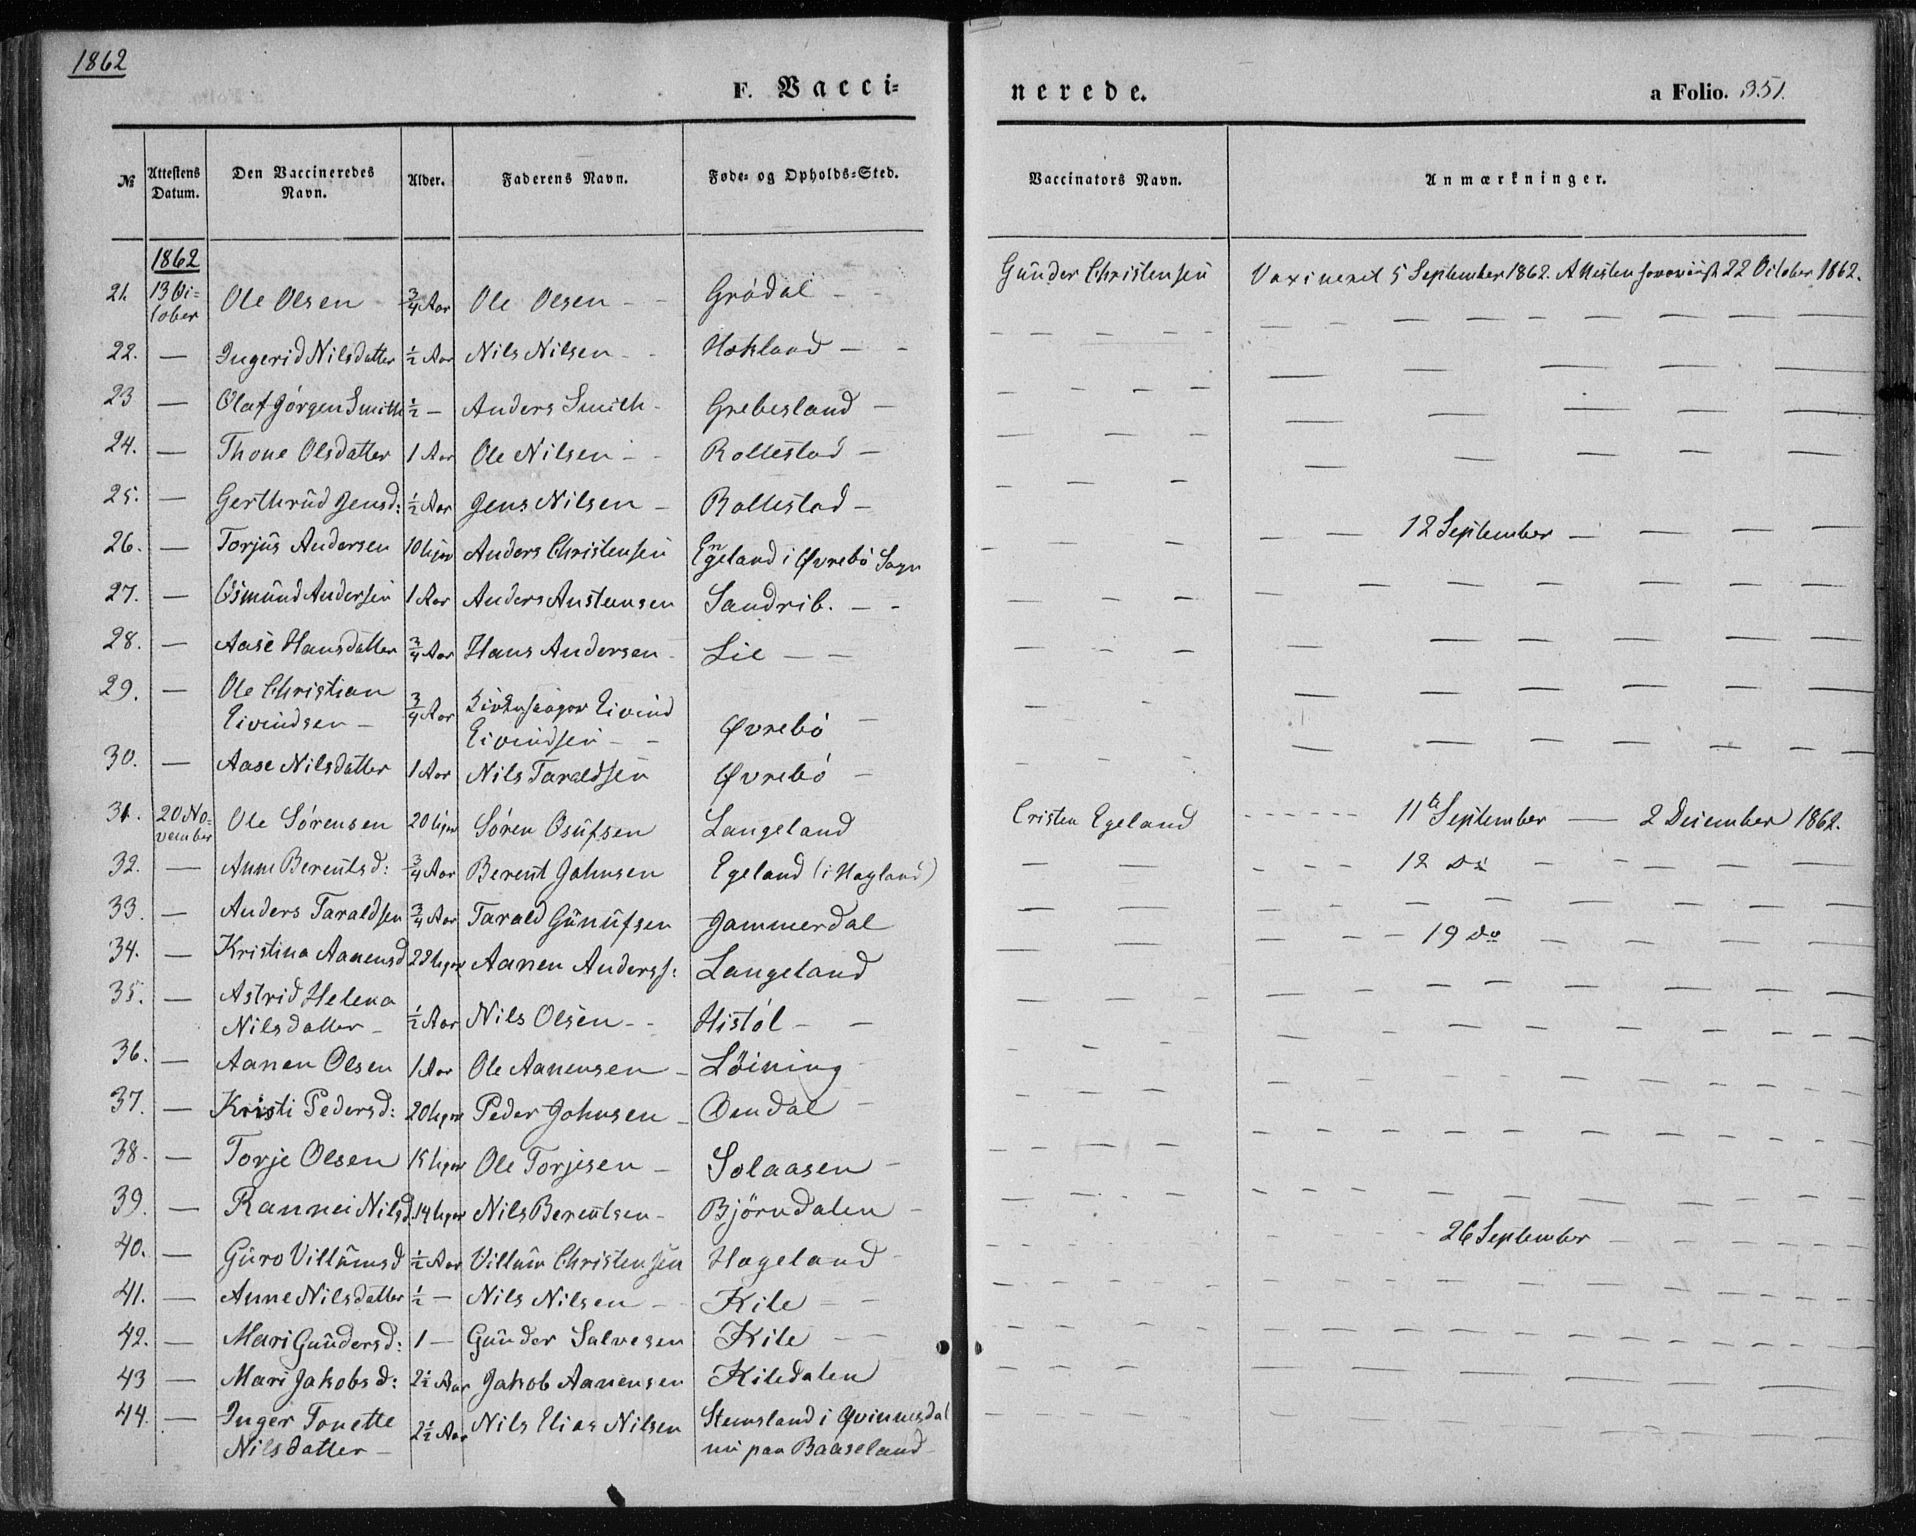 1862
F. Vacci=
nerede.
a Folio. 351.
№ | Attestens Datum. | Den Vaccineredes Navn. | Alder. | Faderens Navn. | Føde- og Opholds-Sted. | Vaccinators Navn. | Anmærkninger.
1862
21. | 13 Oc=tober | Ole Olsen | 3/4 Aar | Ole Olsen - - | Grödal - - | Gunder Christensen | Vaxineret 5 September 1862. Attesten 22 October 1862.
22. | — | Ingerid Nilsdatter | 1/2 Aar | Nils Nilsen - - | Hokland - -
23 | — | Olaf Jörgen Smith | 1/2 — | Anders Smith - | Grebesland —
24. | — | Thone Olsdatter | 1 Aar | Ole Nilsen - - | Rollestad —
25. | — | Gerthrud Jensd: | 1/2 Aar | Jens Nilsen - | Rollestad —
26. | — | Torjus Andersen | 10 Uger | Anders Christensen | Egeland i Øvrebö Sogn | 12 September —
27. | — | Osmund Andersen | 1 Aar | Anders Austensen | Sandrib. - -
28. | — | Aase Hansdatter | 3/4 Aar | Hans Andersen - | Lie — —
29. | — | Ole Christian
Eivindsen — | 3/4 Aar | Eivind
Eivindsen - - | Øvrebö —
30. | — | Aase Nilsdatter | 1 Aar | Nils Taraldsen | Øvrebö —
31. | 20 No=vember | Ole Sörensen | 20 Uger | Sören Osufsen | Langeland | Cristen Egeland | 11te September — 2 December 1862.
32. | — | Anne Berentsd: | 3/4 Aar | Berent Johnsen | Egeland (i Hægland) | — — | 12 Do
33. | — | Anders Taraldsen | 3/4 Aar | Tarald Gunufsen | Jammerdal
34. | — | Kristina Aanensd | 22 Uger | Aanen Anderss: | Langeland | 19 Do
35. | — | Astrid Helena
Nilsdatter — | 1/2 Aar | Nils Olsen - - | Histöl - —
36. | — | Aanen Olsen | 1 Aar | Ole Aanensen — | Löining
37. | — | Kristi Pedersd: | 20 Uger | Peder Johnsen — | Omdal —
38. | — | Torje Olsen | 15 Uger | Ole Torjesen — | Solaasen —
39. | — | Rannei Nilsd. | 14 Uger | Nils Berentsen — | Björndalen —
40. | — | Guro Villumsd | 1/2 Aar | Villum Christensen | Hageland — | 26 September —
41. | — | Anne Nilsdatter | 1/2 — | Nils Nilsen — | Kile — —
42. | — | Mari Gundersd: | 1 — | Gunder Salvesen | Kile — —
43 | — | Mari Jakobsd: | 2 1/2 Aar | Jakob Aanensen | Kiledalen
44. | — | Inger Tonette
Nilsdatter — | 2 1/2 Aar | Nils Elias Nilsen | Stemsland i Qvinnesdal
nu paa Baaseland —